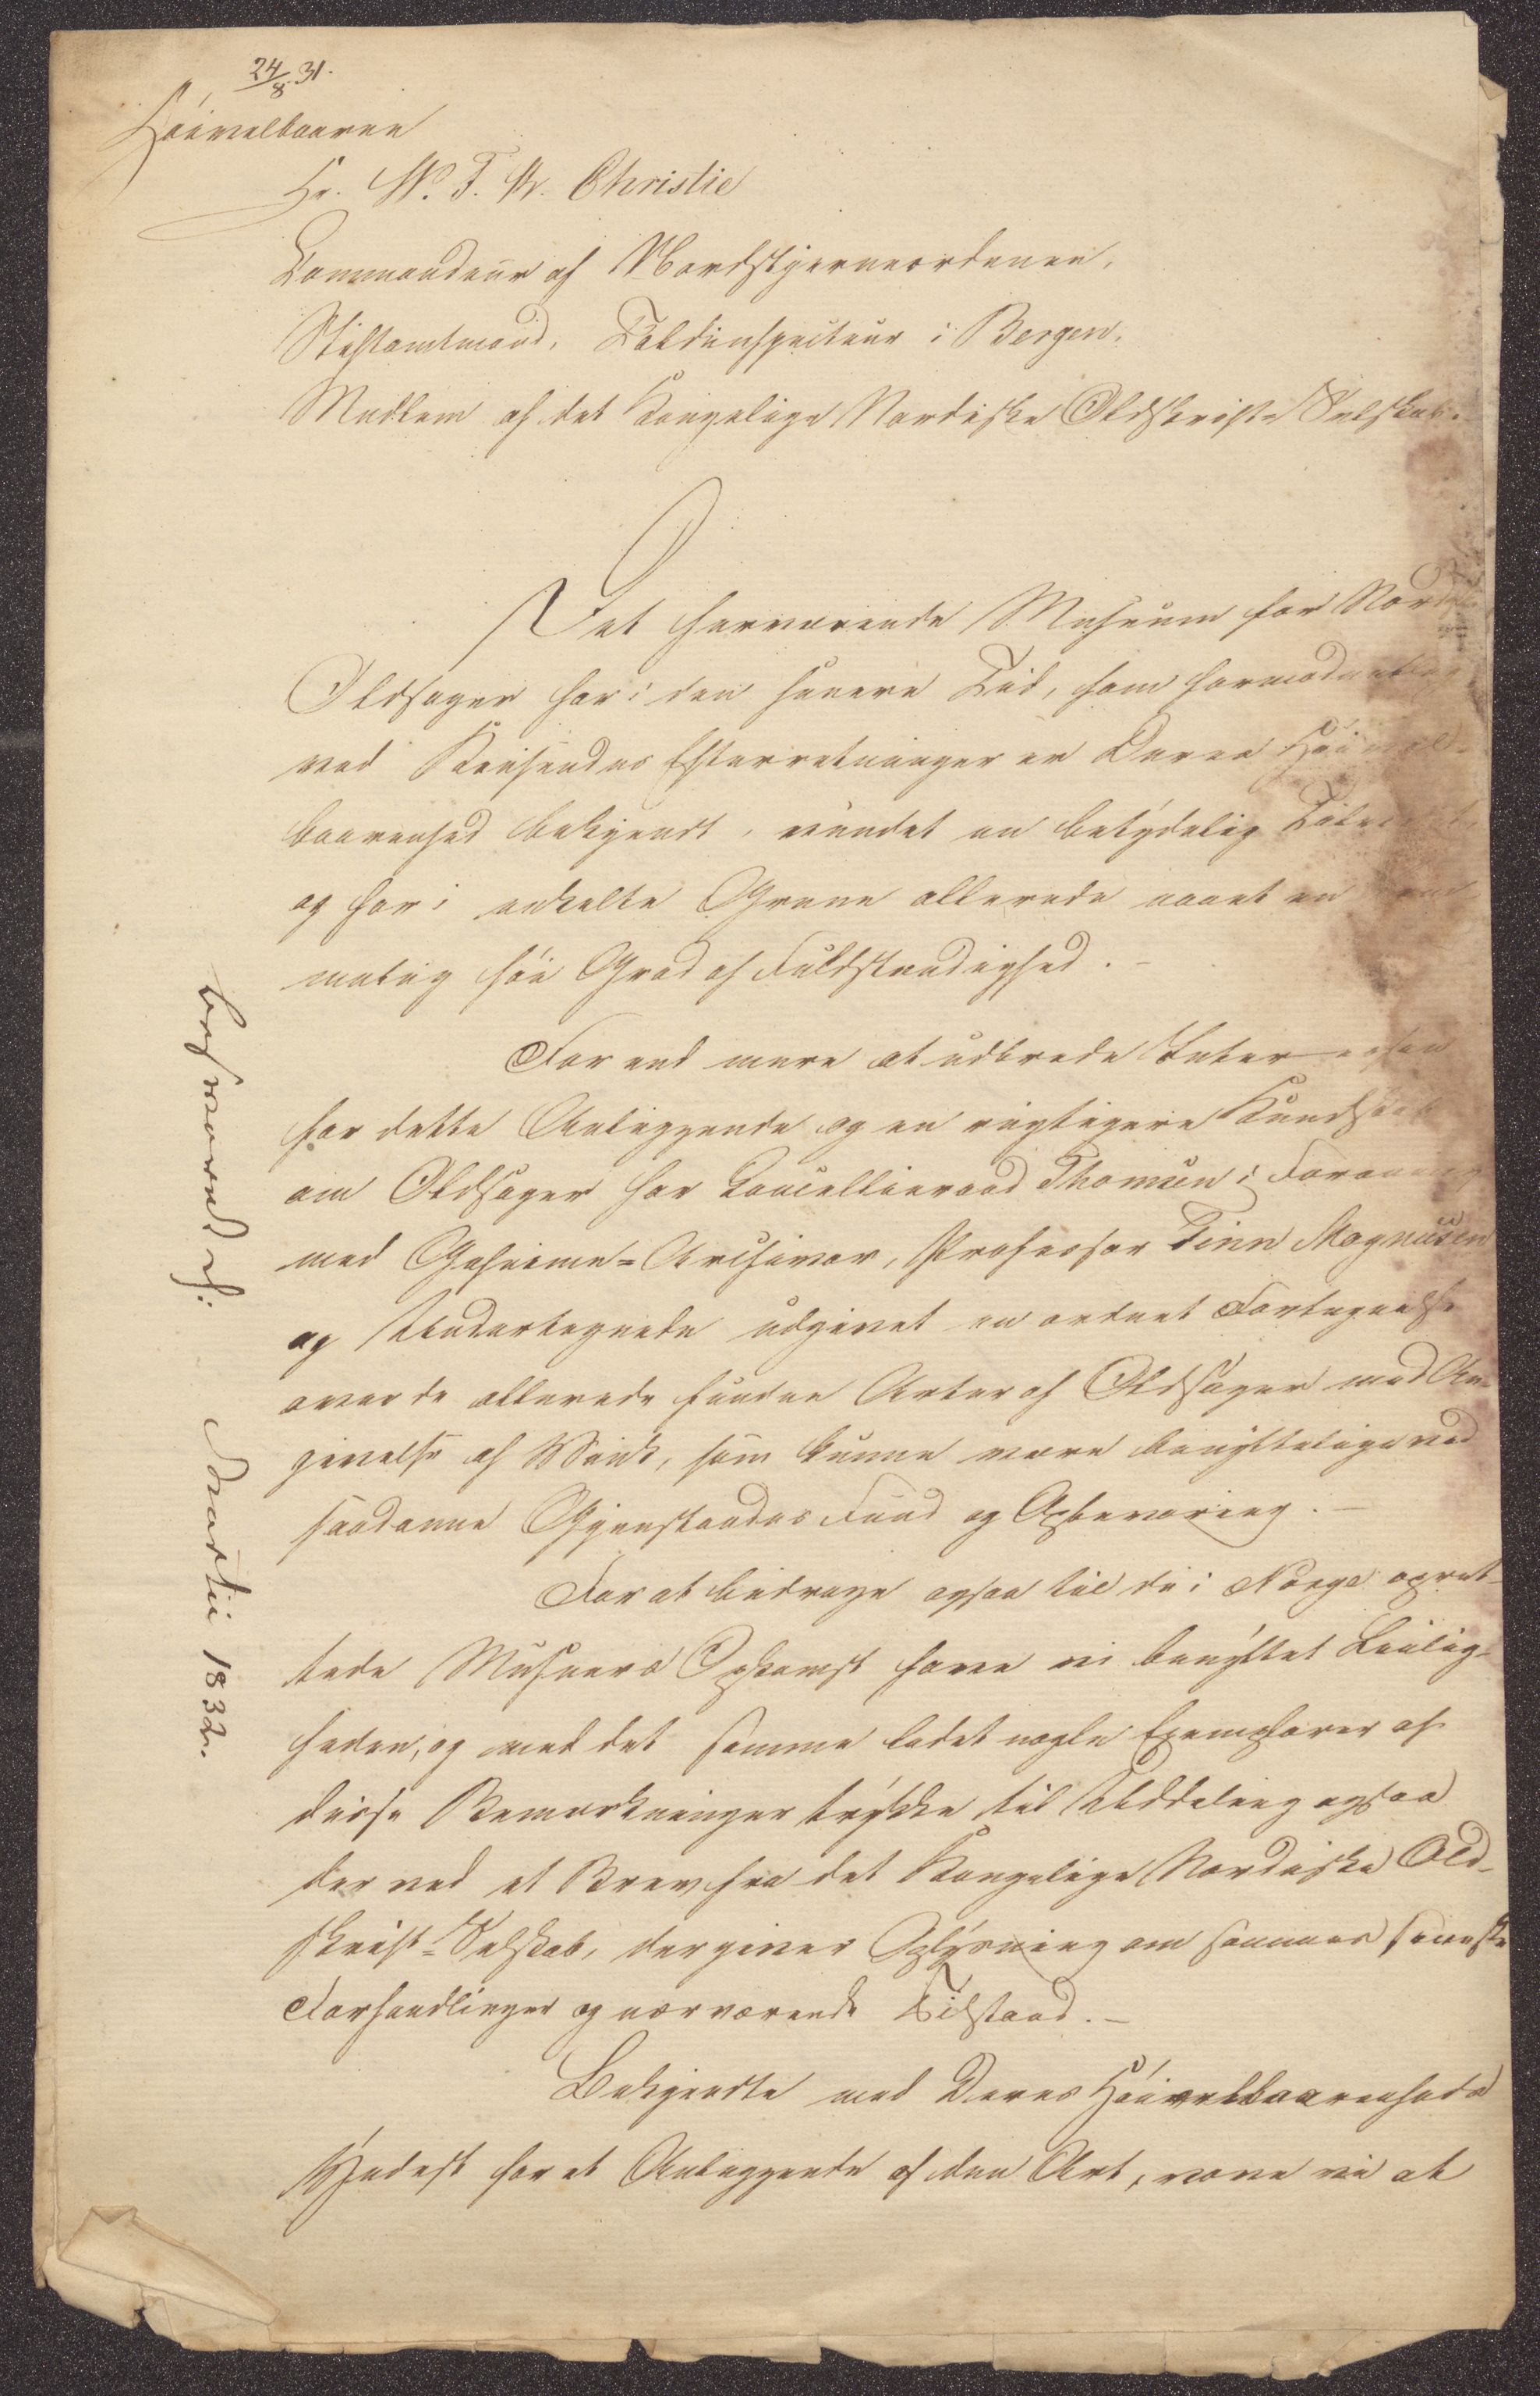 24/8 31.
Høivelbaarne
Hr. W. F. K. Christie
Commandeur af Nordstjerneordenen,
Stiftamtmand, Toldinspecteur i Bergen,
Medlem af det Kongelige Nordiske Oldskrift-Selskab.
Det herværende Museum for Nord
Oldsager har i den senere Tid, som formodentlig
ved Reisendes Efterretninger er Deres Høivel-
baarenhed bekjendt, vundet en betydelig
og har i enkelte Grene allerede naaet en
melig høi Grad af Fuldstændighed. –
For end mere at udbrede Interessen
for dette Anliggende og en rigtigere Kundskab
om Oldsager har Cancellieraad Thomsen i Forening
med Geheime-Archivar, Professor Finn Magnusen
og Undertegnede udgivet en ordnet Fortegnelse
over de allerede fundne Arter af Oldsager med An-
givelse af Vink, som kunne være benyttelige ved
saadanne Gjenstandes Fund og Opbevaring. –
For at bidrage ogsaa til de i Norge opret-
tede Museers Opkomst have vi benyttet Leilig-
heden, og med det samme ladet nogle Exemplarer af
disse Bemærkninger trykke til Uddeling ogsaa
der ved et Brev fra det Kongelige Nordiske Old-
skrift-Selskab, der giver Oplysning om sammes seneste
Forhandlinger og nærværende Tilstand. –
Bekjendte med Deres Høivelbaarenheds
Yndest for et Anliggende af den Art, vove vi at
besvaret d: Martii 1832.